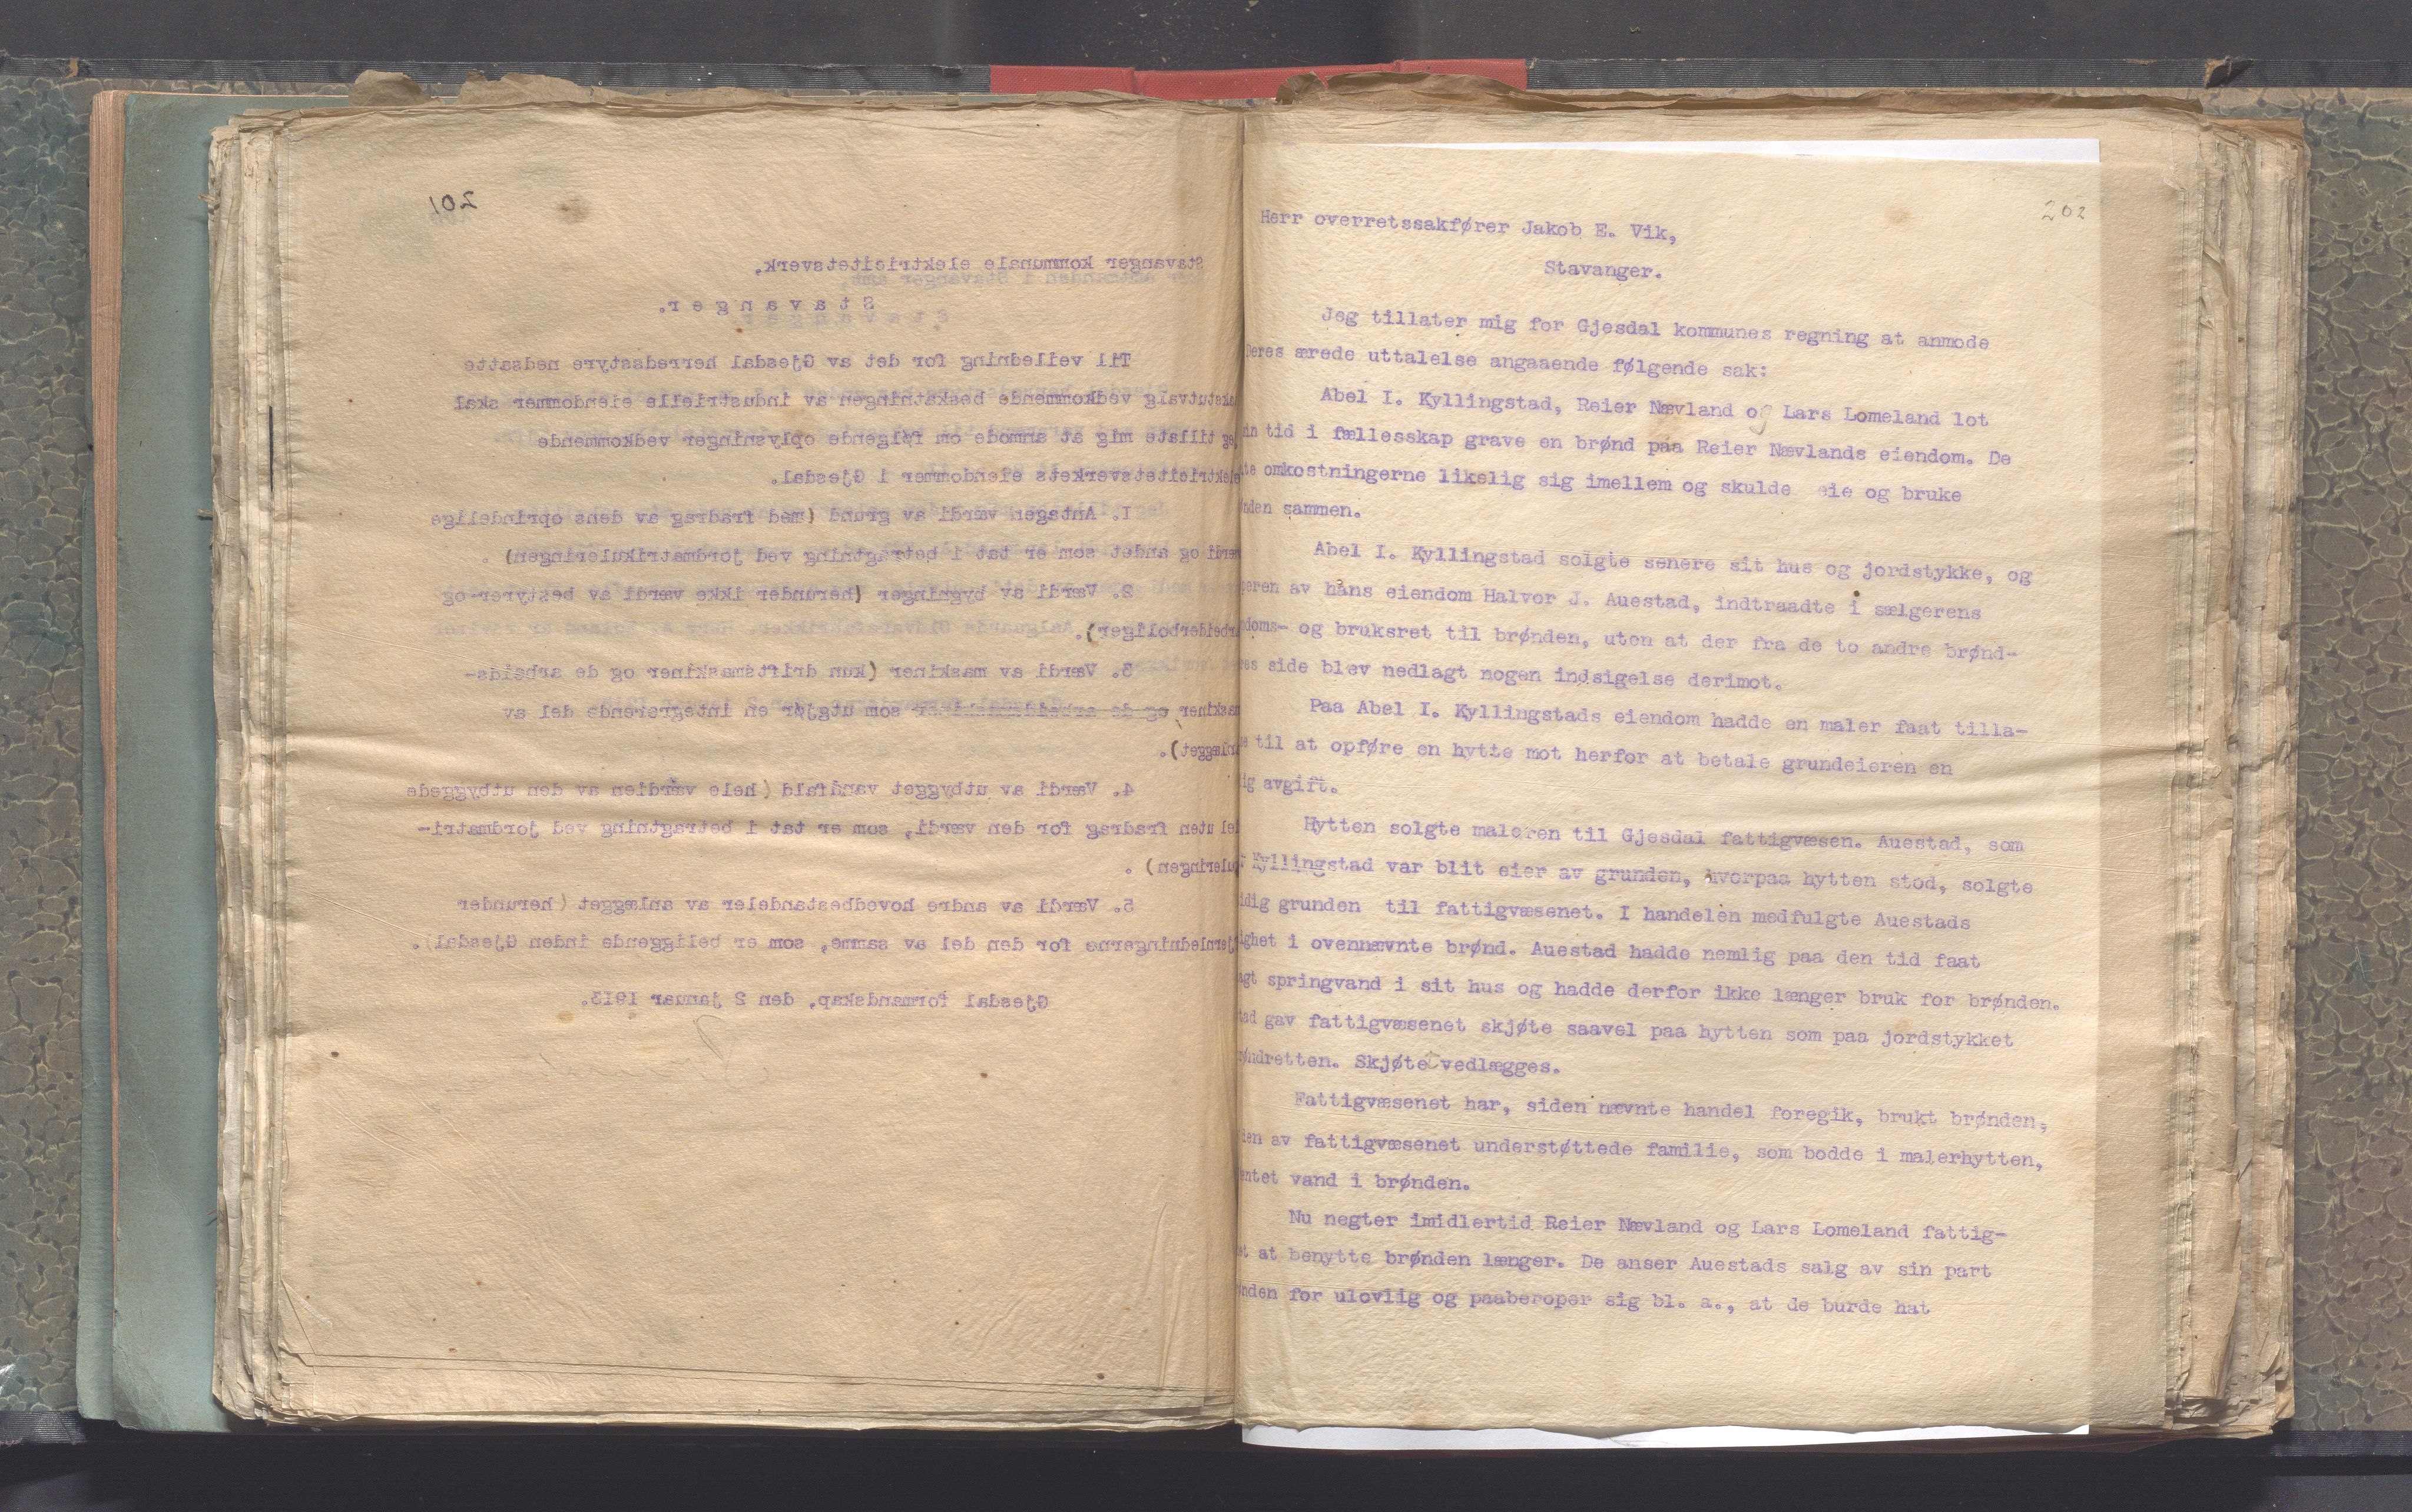 201
Stavanger kommunale elektricitetsverk,
Stavanger.
Til veiledning for det av Gjesdal herredsstyre nedsatte
skatutvalg vedkommende beskatningen av industrielle eiendommer skal
jeg tillate mig at anmode om følgende oplysninger vedkommende
elektricitetsverkets eiendommer i Gjesdal.
1. Antagen værdi av grund (med fradrag av dens oprindelige
værdi og andet som er tat i betragtning ved jordmatrikuleringen).
2. Værdi av bygninger (herunder ikke værdi av bestyrer-og
arbeiderboliger).
3. Værdi av maskiner (kun driftsmaskiner og de arbeids-
maskiner og de arbeidsmaskiner som utgjør en integrerende del av
anlægget).
4. Værdi av utbygget vandfald (hele værdien av den utbyggede
del uten fradrag for den værdi, som er tat i betragtning ved jordmatri-
kuleringen).
5. Værdi av andre hovedbestandeler av anlægget (herunder
fjernledningerne for den del av samme, som er beliggende inden Gjesdal).
Gjesdal formandskap, den 2 januar 1913.
202
Herr overretssakfører Jakob E. Vik,
Stavanger.
Jeg tillater mig for Gjesdal kommunes regning at anmode
Deres ærede uttalelse angaaende følgende sak:
Abel I. Kyllingstad, Reier Nævland og Lars Lomeland lot
in tid i fællesskap grave en brønd paa Reier Nævlands eiendom. De
te omkostningerne likelig sig imellem og skulde eie og bruke
nden sammen.
Abel I. Kyllingstad solgte senere sit hus og jordstykke, og
eren av hans eiendom Halvor J. Auestad, indtraadte i sælgerens
doms- og bruksret til brønden, uten at der fra de to andre brønd-
es side blev nedlagt nogen indsigelse derimot.
Paa Abel I. Kyllingstads eiendom hadde en maler faat tilla-
e til at opføre en hytte mot herfor at betale grundeieren en
ig avgift.
Hytten solgte maleren til Gjesdal fattigvæsen. Auestad, som
r Kyllingstad var blit eier av grunden, hvorpaa hytten stod, solgte
idig grunden til fattigvæsenet. I handelen medfulgte Auestads
ighet i ovennævnte brønd. Auestad hadde nemlig paa den tid faat
agt springvand i sit hus og hadde derfor ikke længer bruk for brønden.
tad gav fattigvæsenet skjøte saavel paa hytten som paa jordstykket
røndretten. Skjøtet vedlægges.
Fattigvæsenet har, siden nævnte handel foregik, brukt brønden,
den av fattigvæsenet understøttede familie, som bodde i malerhytten,
entet vand i brønden.
Nu negter imidlertid Reier Nævland og Lars Lomeland fattig-
et at benytte brønden længer. De anser Auestads salg av sin part
ønden for ulovlig og paaberoper sig bl. a., at de burde hat